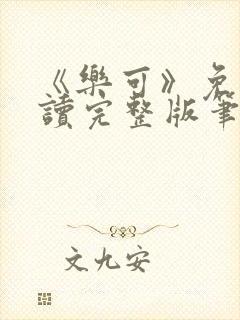 《樂可》免
讀完整版筆
文九安